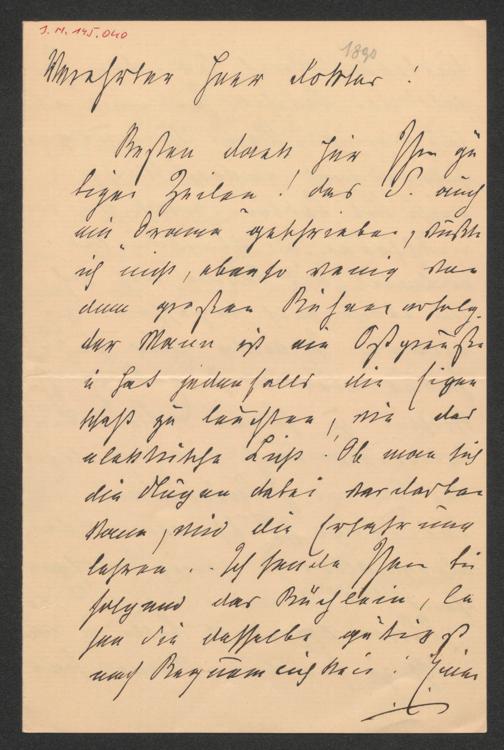 I.N. 145.040
1890
Verehrter Herr Doktor!
Besten Dank für Ihre gü
tigen Zeilen! Das S. auch
ein Drama geschrieben, wußte
ich nicht, ebenso wenig von
dem großen Bühnenerfolg.
Der Mann ist ein Ostpreuße
u hat jedenfalls die Eigen
schaft zu leuchten, wie das
elektrische Licht! Ob man sich
die Augen dabei verderben
kann, wird die Erfahrung
lehren. Ich sende Ihnen bei
folgend das Büchlein, le
sen Sie dasselbe gütigst
nach Bequemlichkeit!